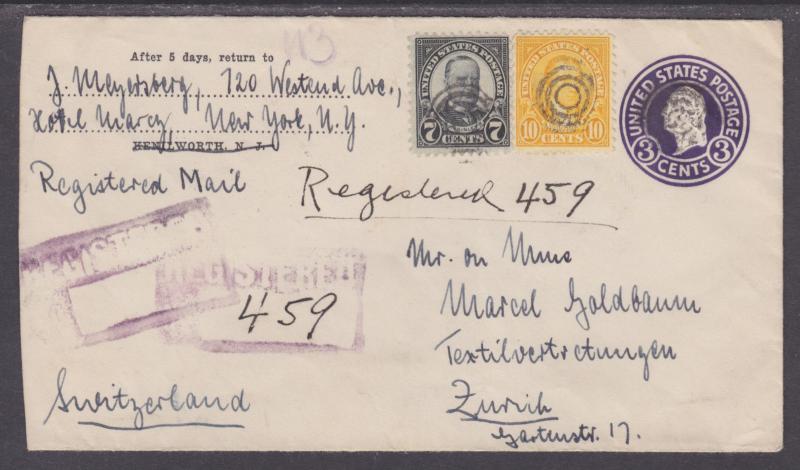 After 5 days, return to
J. Meyersberg, 720 Westend Ave.,
Hotel Marcy, New York, N.Y.
KENILWORTH, N. J.
Registered Mail
113
UNITED STATES POSTAGE
7 CENTS 7
UNITED STATES POSTAGE
10 CENTS 10
UNITED STATES POSTAGE
3 CENTS 3
Registered 459
REGISTERED
REGISTERED
459
Mr. on Mme
Marcel Goldbaum
Textilvertretungen
Zurich
Gartenstr. 17.
Switzerland